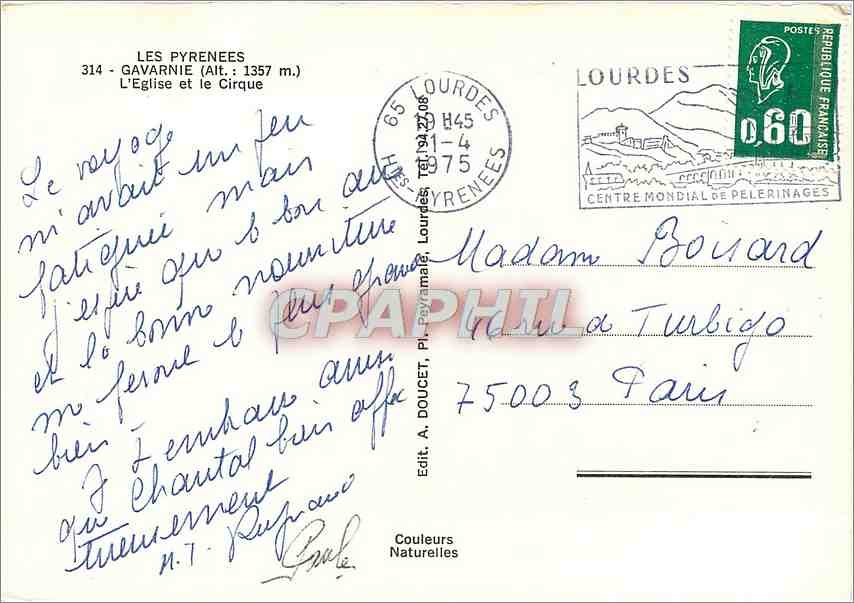 LES PYRENEES
314 - GAVARNIE (Alt. : 1357 m.)
L'Eglise et le Cirque
Le voyage
m'avait un peu
fatiguée mais
j'espère que le bon air
et la bonne nourriture
me feront le plus grand
bien -
Je t'embrasse ainsi
que Chantal bien affec
tueusement
M.T.
Paule
Couleurs
Naturelles
Edit. A. DOUCET, Pl. Peyramale, Lourdes, Tél. 94.27.08
65 LOURDES
19 H45
1-4
1975
HTES-PYRENEES
LOURDES
CENTRE MONDIAL DE PELERINAGES
POSTES
REPUBLIQUE FRANÇAISE
0,60
Madame Boisard
46 rue de Turbigo
75003 Paris
CPAPHIL